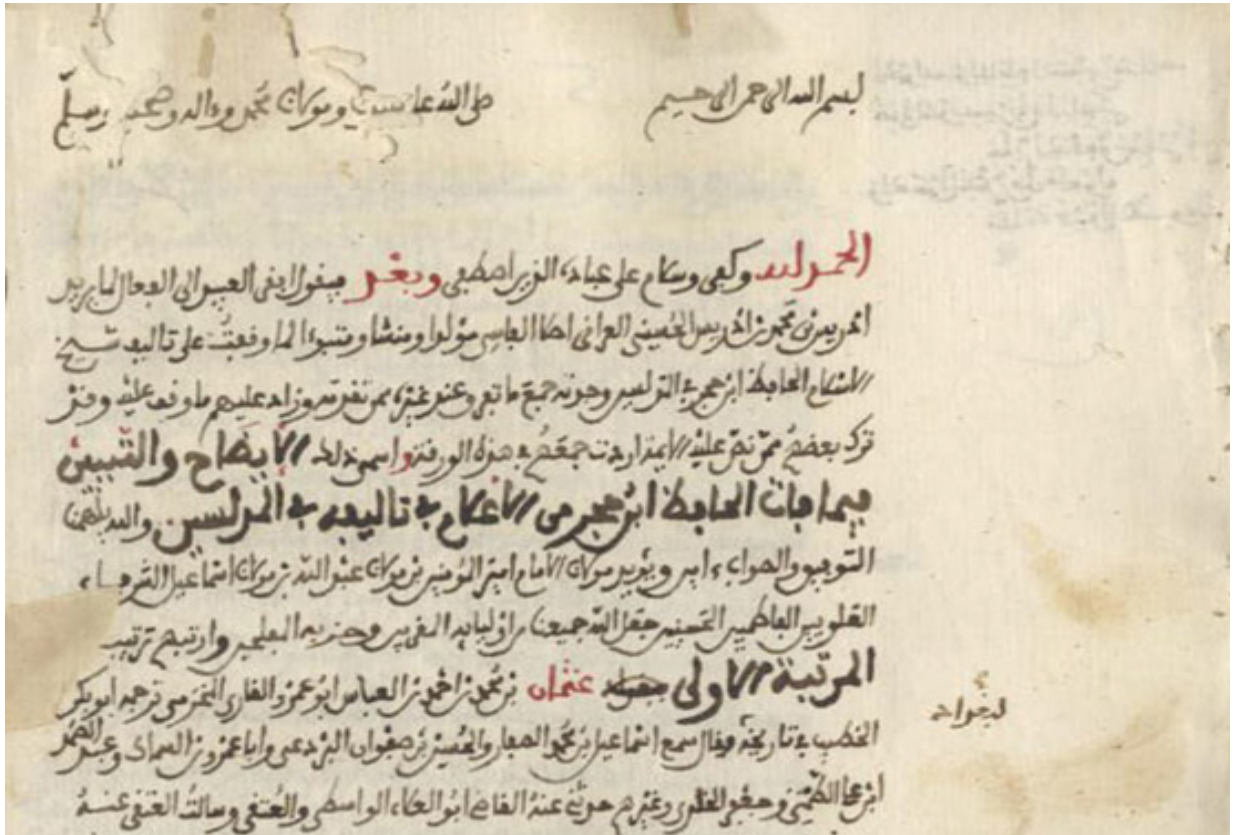 بسم الله الرحمن الرحيم
صلى الله على سيدنا ومولانا محمد وءاله وصحبه وسلم
الحمد لله وكفى وسلام على عباده الذين اصطفى وبعد فيقول افقر العبيد الى الفعال لما يريد
ادريس بن محمد بن ادريس الحسيني العراقي اصلا الفاسي مولدا ومنشا لما وقفت على تاليف شيخ
الاسلام الحافظ ابن حجر في التدليس وجدته جمع ما تفرق عند غيره ممن تقدمه وزاد عليهم ما وقف عليه وقد
ترك بعضهم ممن نص عليه الايمة اردت جمعهم في هذه الورقة واسمي ذلك الايضاح والتبيين
فيما فات الحافظ ابن حجر من الاعلام في تاليفه في المدلسين والله يلهمنا
التوفيق والصواب ءامين ويؤيد مولانا الامام امير المؤمنين بن مولانا عبد الله بن مولانا اسماعيل الشرفاء
العلويين الفاطميين الحسنيين جعل الله جميعنا من اوليايه المقربين وحزبه المفلحين وارتبهم ترتيب
المرتبة الاولى عثمان بن محمد بن احمد بن العباس ابو عمرو القاري المخرمي ترجمه ابو بكر
لبغواده
الخطيب في تاريخه فقال سمع اسماعيل بن محمد الصفار والحسين بن صفوان البرذعي وابا عمرو بن السماك وعبد الصمد
ابن علي الطستي وجعفر الخلدي وغيرهم حدثني عنه القاضي ابو العلاء الواسطي والعتقي وسالت العتقي عنه